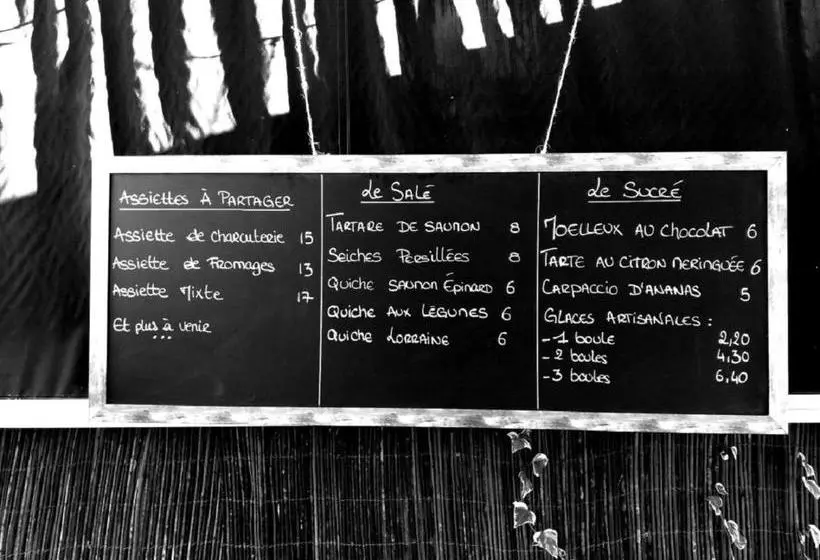 Assiettes À Partager
Assiette de charcuterie 15
Assiette de Fromages 13
Assiette Mixte 17
Et plus à venir
...
Le Salé
Tartare de saumon 8
Seiches Persillées 8
Quiche saumon Épinard 6
Quiche aux Légumes 6
Quiche Lorraine 6
Le Sucré
Moelleux au chocolat 6
Tarte au citron meringuée 6
Carpaccio d'ananas 5
Glaces Artisanales :
- 1 boule 2,20
- 2 boules 4,30
- 3 boules 6,40